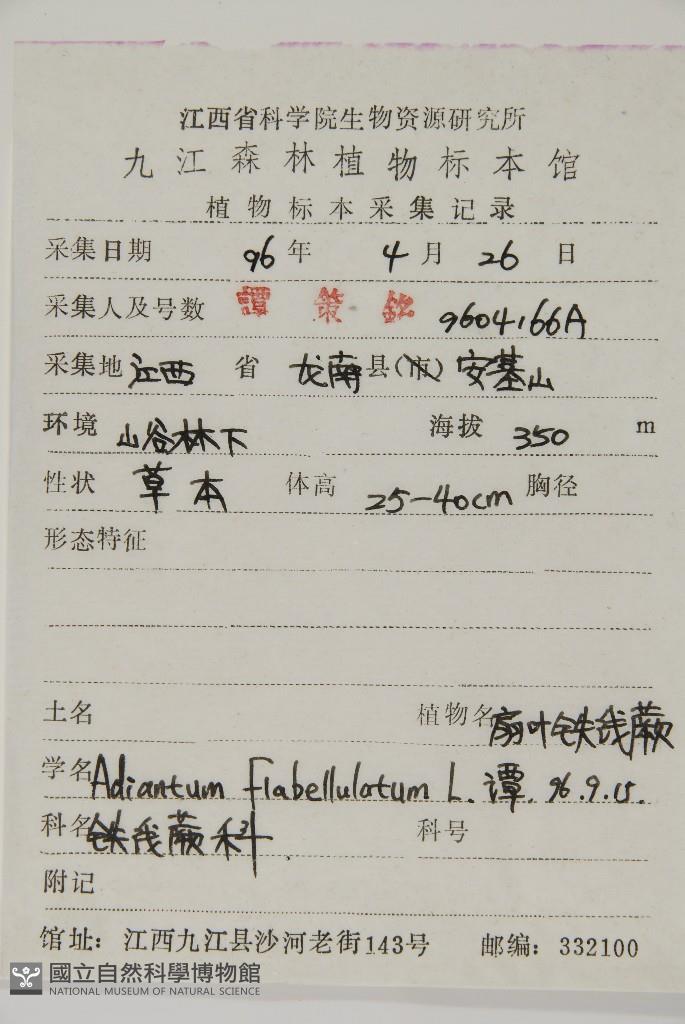 江西省科学院生物资源研究所
九江森林植物标本馆
植物标本采集记录
采集日期 96年 4月 26日
采集人及号数 譚策銘 9604166A
采集地 江西 省 龙南 县(市) 安基山
环境 山谷林下 海拔 350 m
性状 草本 体高 25-40cm 胸径
形态特征
土名 植物名 扇叶铁线蕨
学名 Adiantum flabellulatum L. 谭. 96.9.15.
科名 铁线蕨科 科号
附记
馆址：江西九江县沙河老街143号 邮编：332100
國立自然科學博物館
NATIONAL MUSEUM OF NATURAL SCIENCE